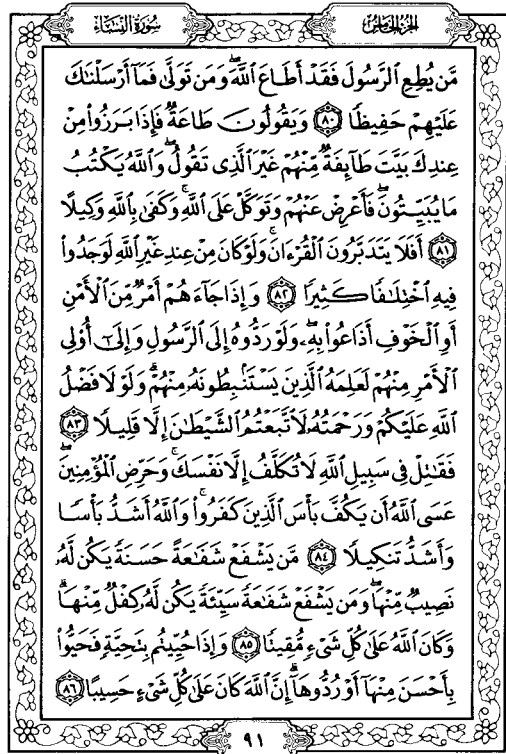 سُورَةُ النِّسَاءِ
الجزء الخامس
مَّن يُطِعِ ٱلرَّسُولَ فَقَدْ أَطَاعَ ٱللَّهَۖ وَمَن تَوَلَّىٰ فَمَآ أَرْسَلْنَٰكَ
عَلَيْهِمْ حَفِيظًا ٨٠ وَيَقُولُونَ طَاعَةٌ فَإِذَا بَرَزُوا۟ مِنْ
عِندِكَ بَيَّتَ طَآئِفَةٌ مِّنْهُمْ غَيْرَ ٱلَّذِى تَقُولُۖ وَٱللَّهُ يَكْتُبُ
مَا يُبَيِّتُونَۖ فَأَعْرِضْ عَنْهُمْ وَتَوَكَّلْ عَلَى ٱللَّهِۚ وَكَفَىٰ بِٱللَّهِ وَكِيلًا
٨١ أَفَلَا يَتَدَبَّرُونَ ٱلْقُرْءَانَۚ وَلَوْ كَانَ مِنْ عِندِ غَيْرِ ٱللَّهِ لَوَجَدُوا۟
فِيهِ ٱخْتِلَٰفًا كَثِيرًا ٨٢ وَإِذَا جَآءَهُمْ أَمْرٌ مِّنَ ٱلْأَمْنِ
أَوِ ٱلْخَوْفِ أَذَاعُوا۟ بِهِۦۖ وَلَوْ رَدُّوهُ إِلَى ٱلرَّسُولِ وَإِلَىٰٓ أُو۟لِى
ٱلْأَمْرِ مِنْهُمْ لَعَلِمَهُ ٱلَّذِينَ يَسْتَنۢبِطُونَهُۥ مِنْهُمْۗ وَلَوْلَا فَضْلُ
ٱللَّهِ عَلَيْكُمْ وَرَحْمَتُهُۥ لَٱتَّبَعْتُمُ ٱلشَّيْطَٰنَ إِلَّا قَلِيلًا ٨٣
فَقَٰتِلْ فِى سَبِيلِ ٱللَّهِ لَا تُكَلَّفُ إِلَّا نَفْسَكَۚ وَحَرِّضِ ٱلْمُؤْمِنِينَۖ
عَسَى ٱللَّهُ أَن يَكُفَّ بَأْسَ ٱلَّذِينَ كَفَرُوا۟ۚ وَٱللَّهُ أَشَدُّ بَأْسًا
وَأَشَدُّ تَنكِيلًا ٨٤ مَّن يَشْفَعْ شَفَٰعَةً حَسَنَةً يَكُن لَّهُۥ
نَصِيبٌ مِّنْهَاۖ وَمَن يَشْفَعْ شَفَٰعَةً سَيِّئَةً يَكُن لَّهُۥ كِفْلٌ مِّنْهَاۗ
وَكَانَ ٱللَّهُ عَلَىٰ كُلِّ شَىْءٍ مُّقِيتًا ٨٥ وَإِذَا حُيِّيتُم بِتَحِيَّةٍ فَحَيُّوا۟
بِأَحْسَنَ مِنْهَآ أَوْ رُدُّوهَآۗ إِنَّ ٱللَّهَ كَانَ عَلَىٰ كُلِّ شَىْءٍ حَسِيبًا ٨٦
٩١